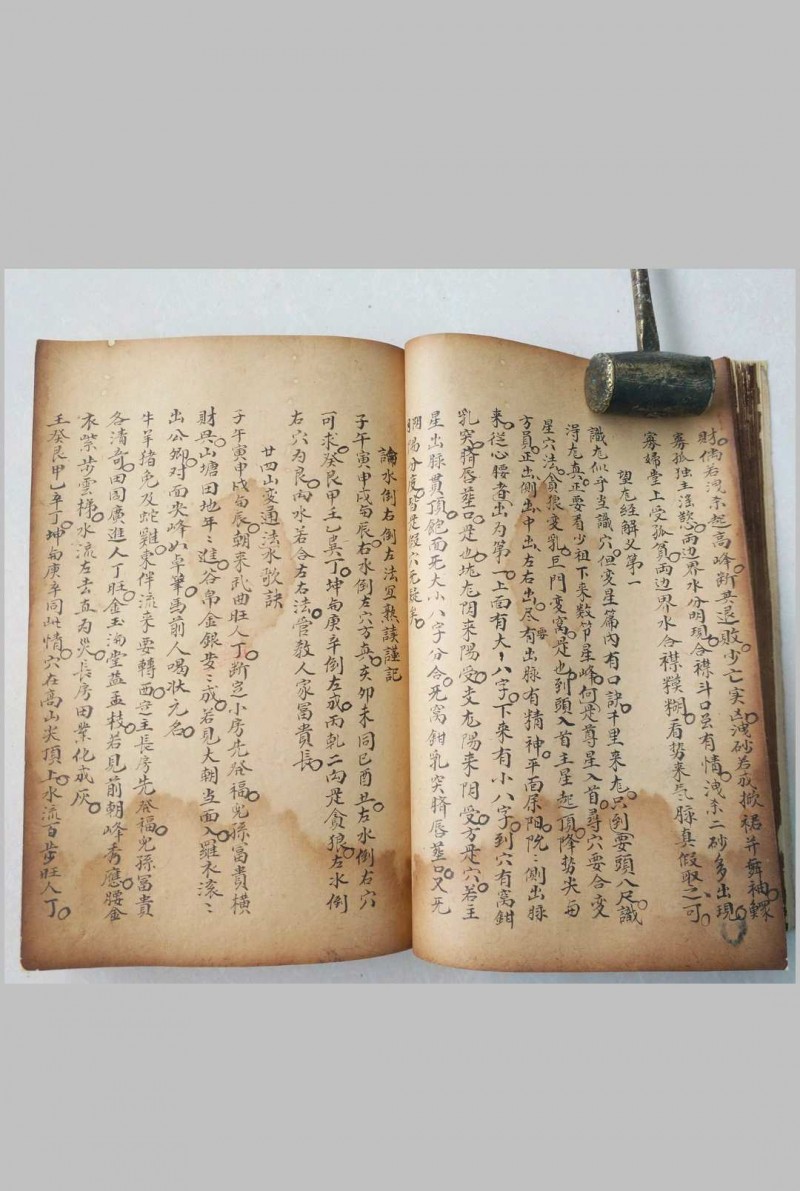 財偶若洩祟起高峰断其退敗少亡实凶洩砂若成掀裙并舞袖鰥
寡孤独主淫慾両边界水分明現合襟斗口虽有情洩祟二砂多出現
寡婦堂上受孤貧両边界水合襟糢糊看势来気脉真假取之可
望尨經解义第一
識尨似乎当識穴但变星篇內有口訣千里来尨只到要頭八尺識
得尨真正要看少祖下来数节星峰何是尊星入首尋穴要合变
星穴法貪狼变乳巨門变窩是也到頭入首主星起頂降势尖每
方員正出側出中出左右出尽有出脉有精神平面屈阻阮側出脉
来從心腰者出为第一上面有大八字下来有小八字到穴有窩鉗
乳突臍唇蕋口是也坑尨阴来陽受支尨陽来阴受方是穴若主
星出脉貫頂飽面死大小八字分合死窩鉗乳突臍唇蕋口又死
阴陽分度皆是假穴死疑矣
論水倒右倒左法宜熟読謹記
子午寅申戍甸辰右水倒左穴方真亥卯未同巳酉丑左水倒右穴
可求癸艮甲壬乙巽丁坤甸庚辛倒左成丙乾二向是貪狼左水倒
右穴为良丙水若合左右法管教人家冨貴長
廿四山变通法水歌訣
子午寅申戍甸辰朝来武曲旺人丁断定小房先發福兒孫冨貴横
財具山塘田地年〻進谷帛金銀岁〻成若見大朝当面入羅衣滚〻
出公卿对面尖峰如卓筆馬前人喝状元名
牛羊猪兔及蛇雞東伴流来要轉西定主長房先發福兒孫冨貴
各清奇田園廣進人丁旺金玉滿堂益孟枝若見前朝峰秀應腰金
衣紫步雲梯水流左去直为災長房田業化成灰
壬癸艮甲乙辛丁坤甸庚辛同此情穴在高山尖頂上水流百步旺人丁